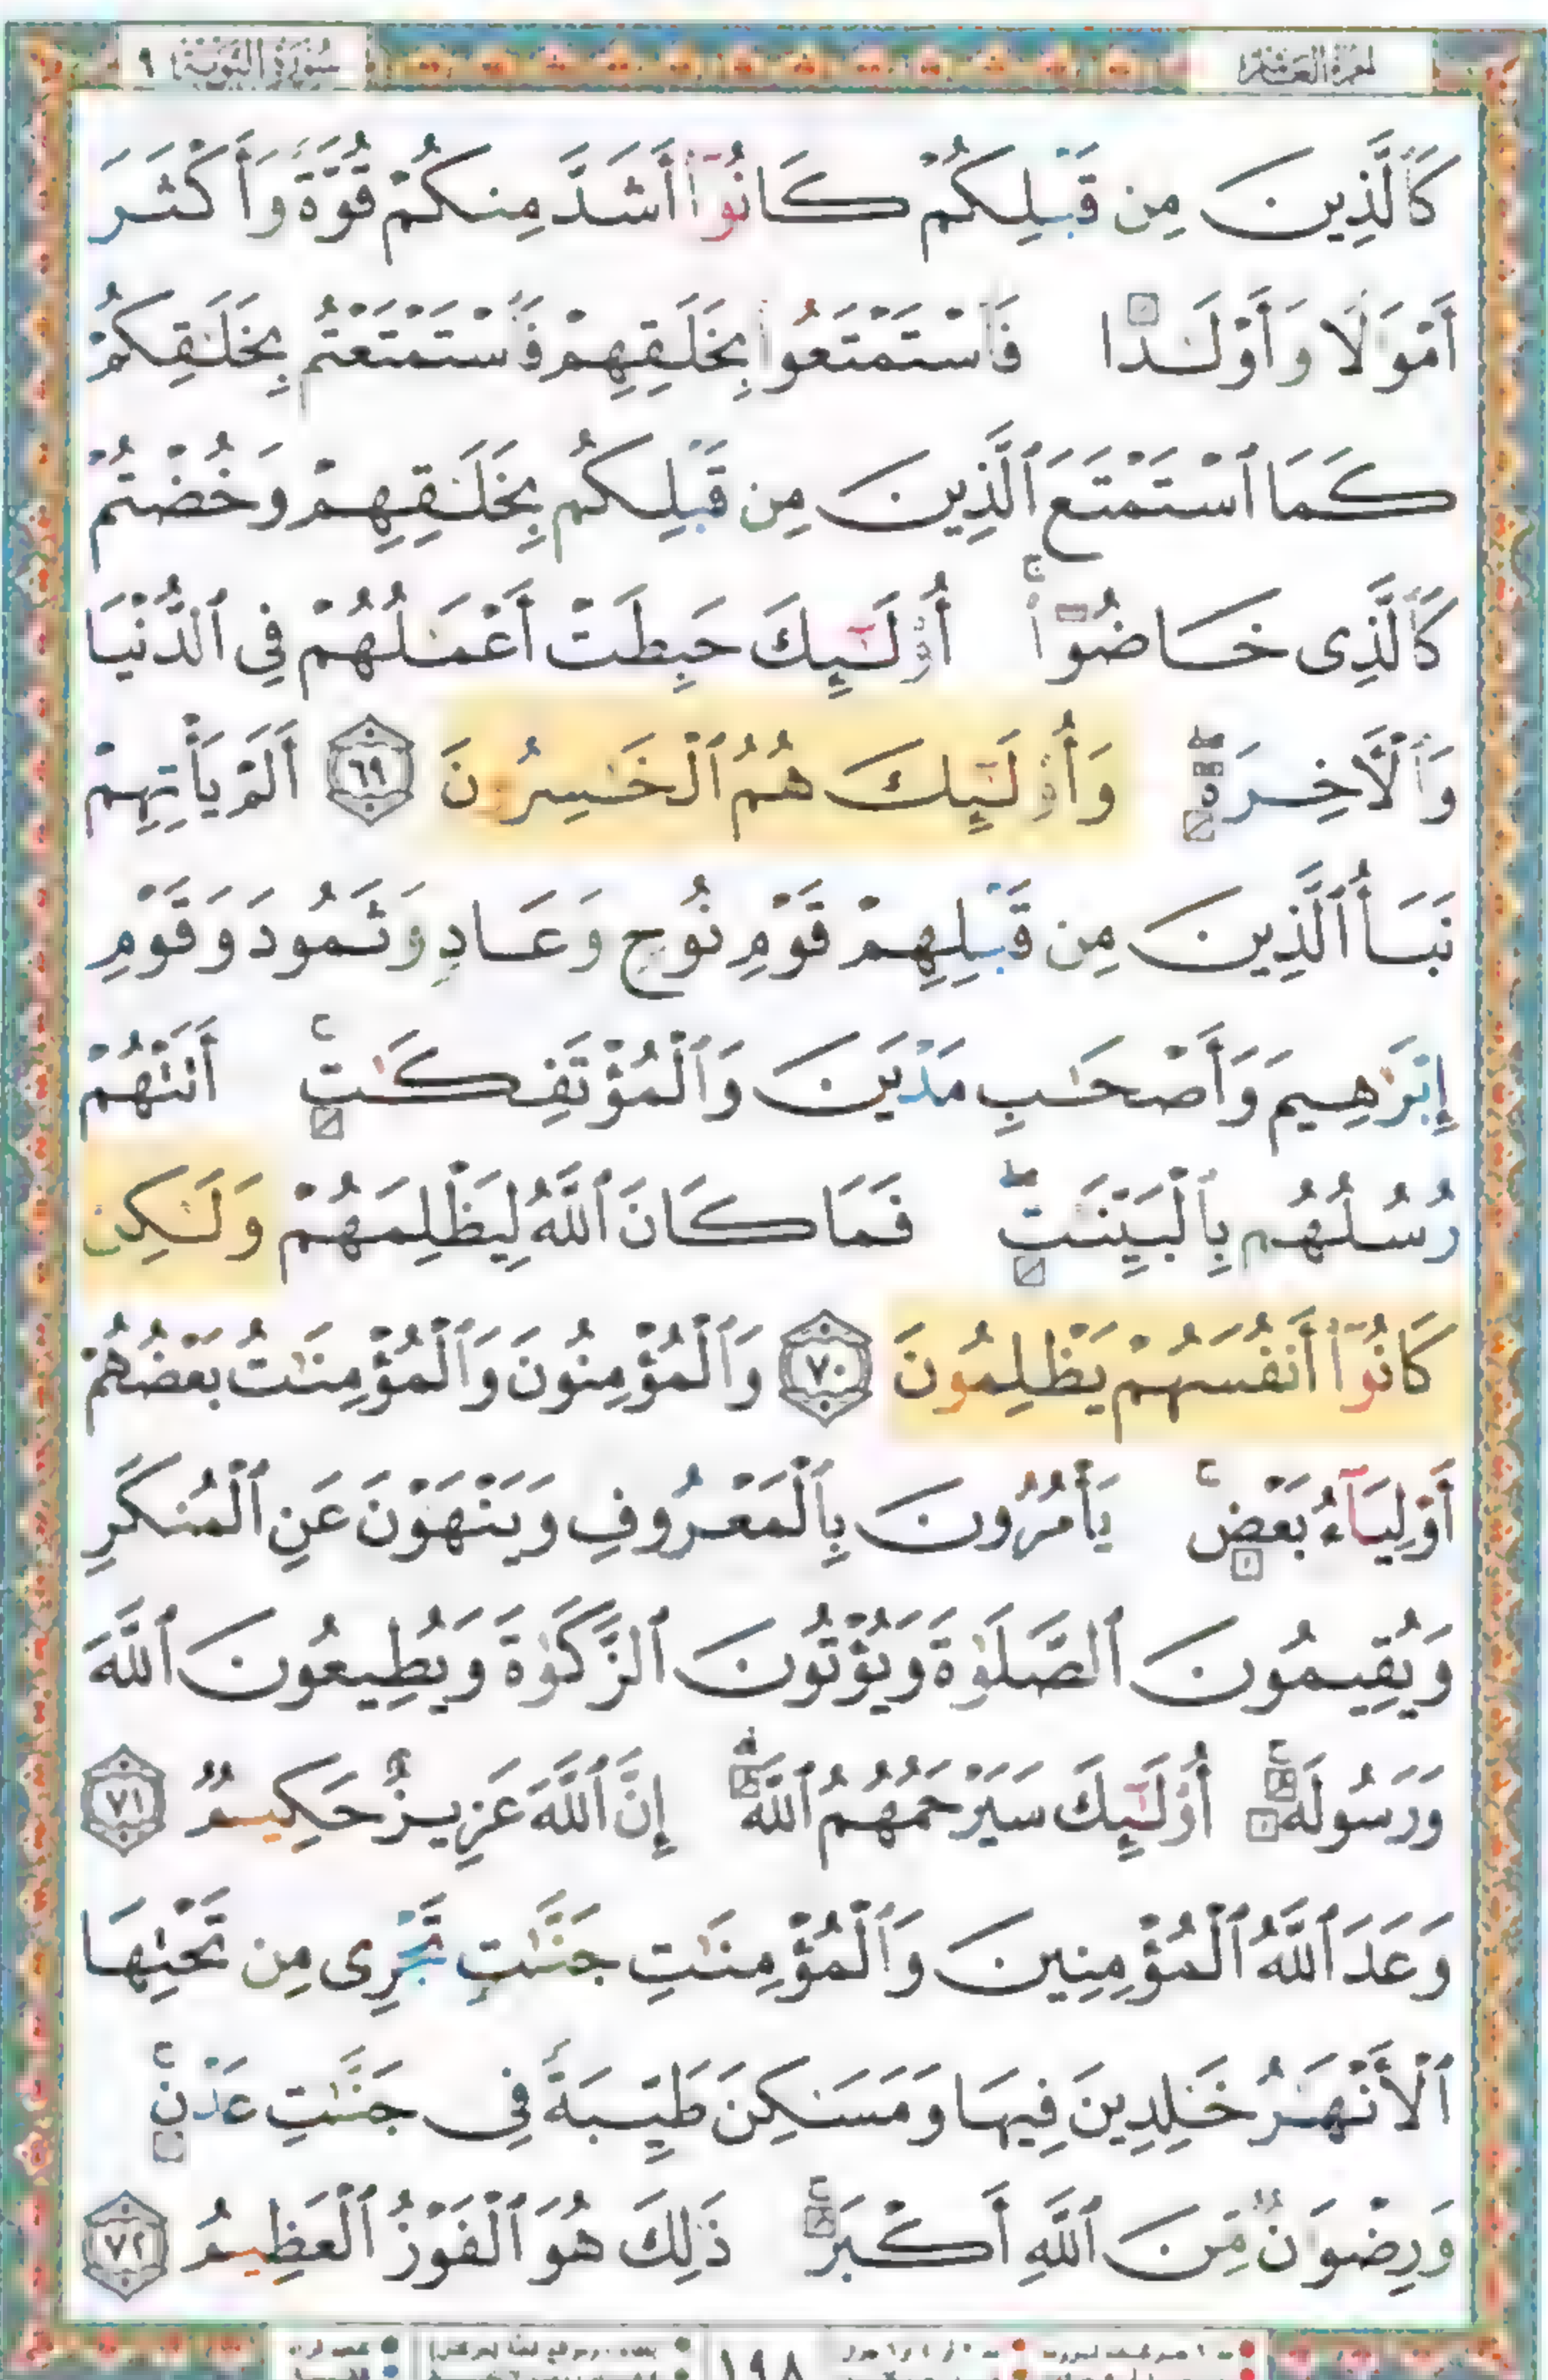 سُورَةُ التَّوْبَةِ ٩
كَٱلَّذِينَ مِن قَبْلِكُمْ كَانُوٓا۟ أَشَدَّ مِنكُمْ قُوَّةً وَأَكْثَرَ
أَمْوَٰلًا وَأَوْلَـٰدًا فَٱسْتَمْتَعُوا۟ بِخَلَـٰقِهِمْ فَٱسْتَمْتَعْتُم بِخَلَـٰقِكُمْ
كَمَا ٱسْتَمْتَعَ ٱلَّذِينَ مِن قَبْلِكُم بِخَلَـٰقِهِمْ وَخُضْتُمْ
كَٱلَّذِى خَاضُوٓا۟ ۚ أُو۟لَـٰٓئِكَ حَبِطَتْ أَعْمَـٰلُهُمْ فِى ٱلدُّنْيَا
وَٱلْـَٔاخِرَ ۖ وَأُو۟لَـٰٓئِكَ هُمُ ٱلْخَـٰسِرُونَ ٦٩ أَلَمْ يَأْتِهِمْ
نَبَأُ ٱلَّذِينَ مِن قَبْلِهِمْ قَوْمِ نُوحٍ وَعَادٍ وَثَمُودَ وَقَوْمِ
إِبْرَٰهِيمَ وَأَصْحَـٰبِ مَدْيَنَ وَٱلْمُؤْتَفِكَـٰتِ ۚ أَتَتْهُمْ
رُسُلُهُم بِٱلْبَيِّنَـٰتِ ۖ فَمَا كَانَ ٱللَّهُ لِيَظْلِمَهُمْ وَلَـٰكِن
كَانُوٓا۟ أَنفُسَهُمْ يَظْلِمُونَ ٧٠ وَٱلْمُؤْمِنُونَ وَٱلْمُؤْمِنَـٰتُ بَعْضُهُمْ
أَوْلِيَآءُ بَعْضٍ ۚ يَأْمُرُونَ بِٱلْمَعْرُوفِ وَيَنْهَوْنَ عَنِ ٱلْمُنكَرِ
وَيُقِيمُونَ ٱلصَّلَوٰةَ وَيُؤْتُونَ ٱلزَّكَوٰةَ وَيُطِيعُونَ ٱللَّهَ
وَرَسُولَهُ ۚ أُو۟لَـٰٓئِكَ سَيَرْحَمُهُمُ ٱللَّهُ ۗ إِنَّ ٱللَّهَ عَزِيزٌ حَكِيمٌ ٧١
وَعَدَ ٱللَّهُ ٱلْمُؤْمِنِينَ وَٱلْمُؤْمِنَـٰتِ جَنَّـٰتٍ تَجْرِى مِن تَحْتِهَا
ٱلْأَنْهَـٰرُ خَـٰلِدِينَ فِيهَا وَمَسَـٰكِنَ طَيِّبَةً فِى جَنَّـٰتِ عَدْنٍ ۚ
وَرِضْوَٰنٌ مِّنَ ٱللَّهِ أَكْبَرُ ۚ ذَٰلِكَ هُوَ ٱلْفَوْزُ ٱلْعَظِيمُ ٧٢
١٩٨